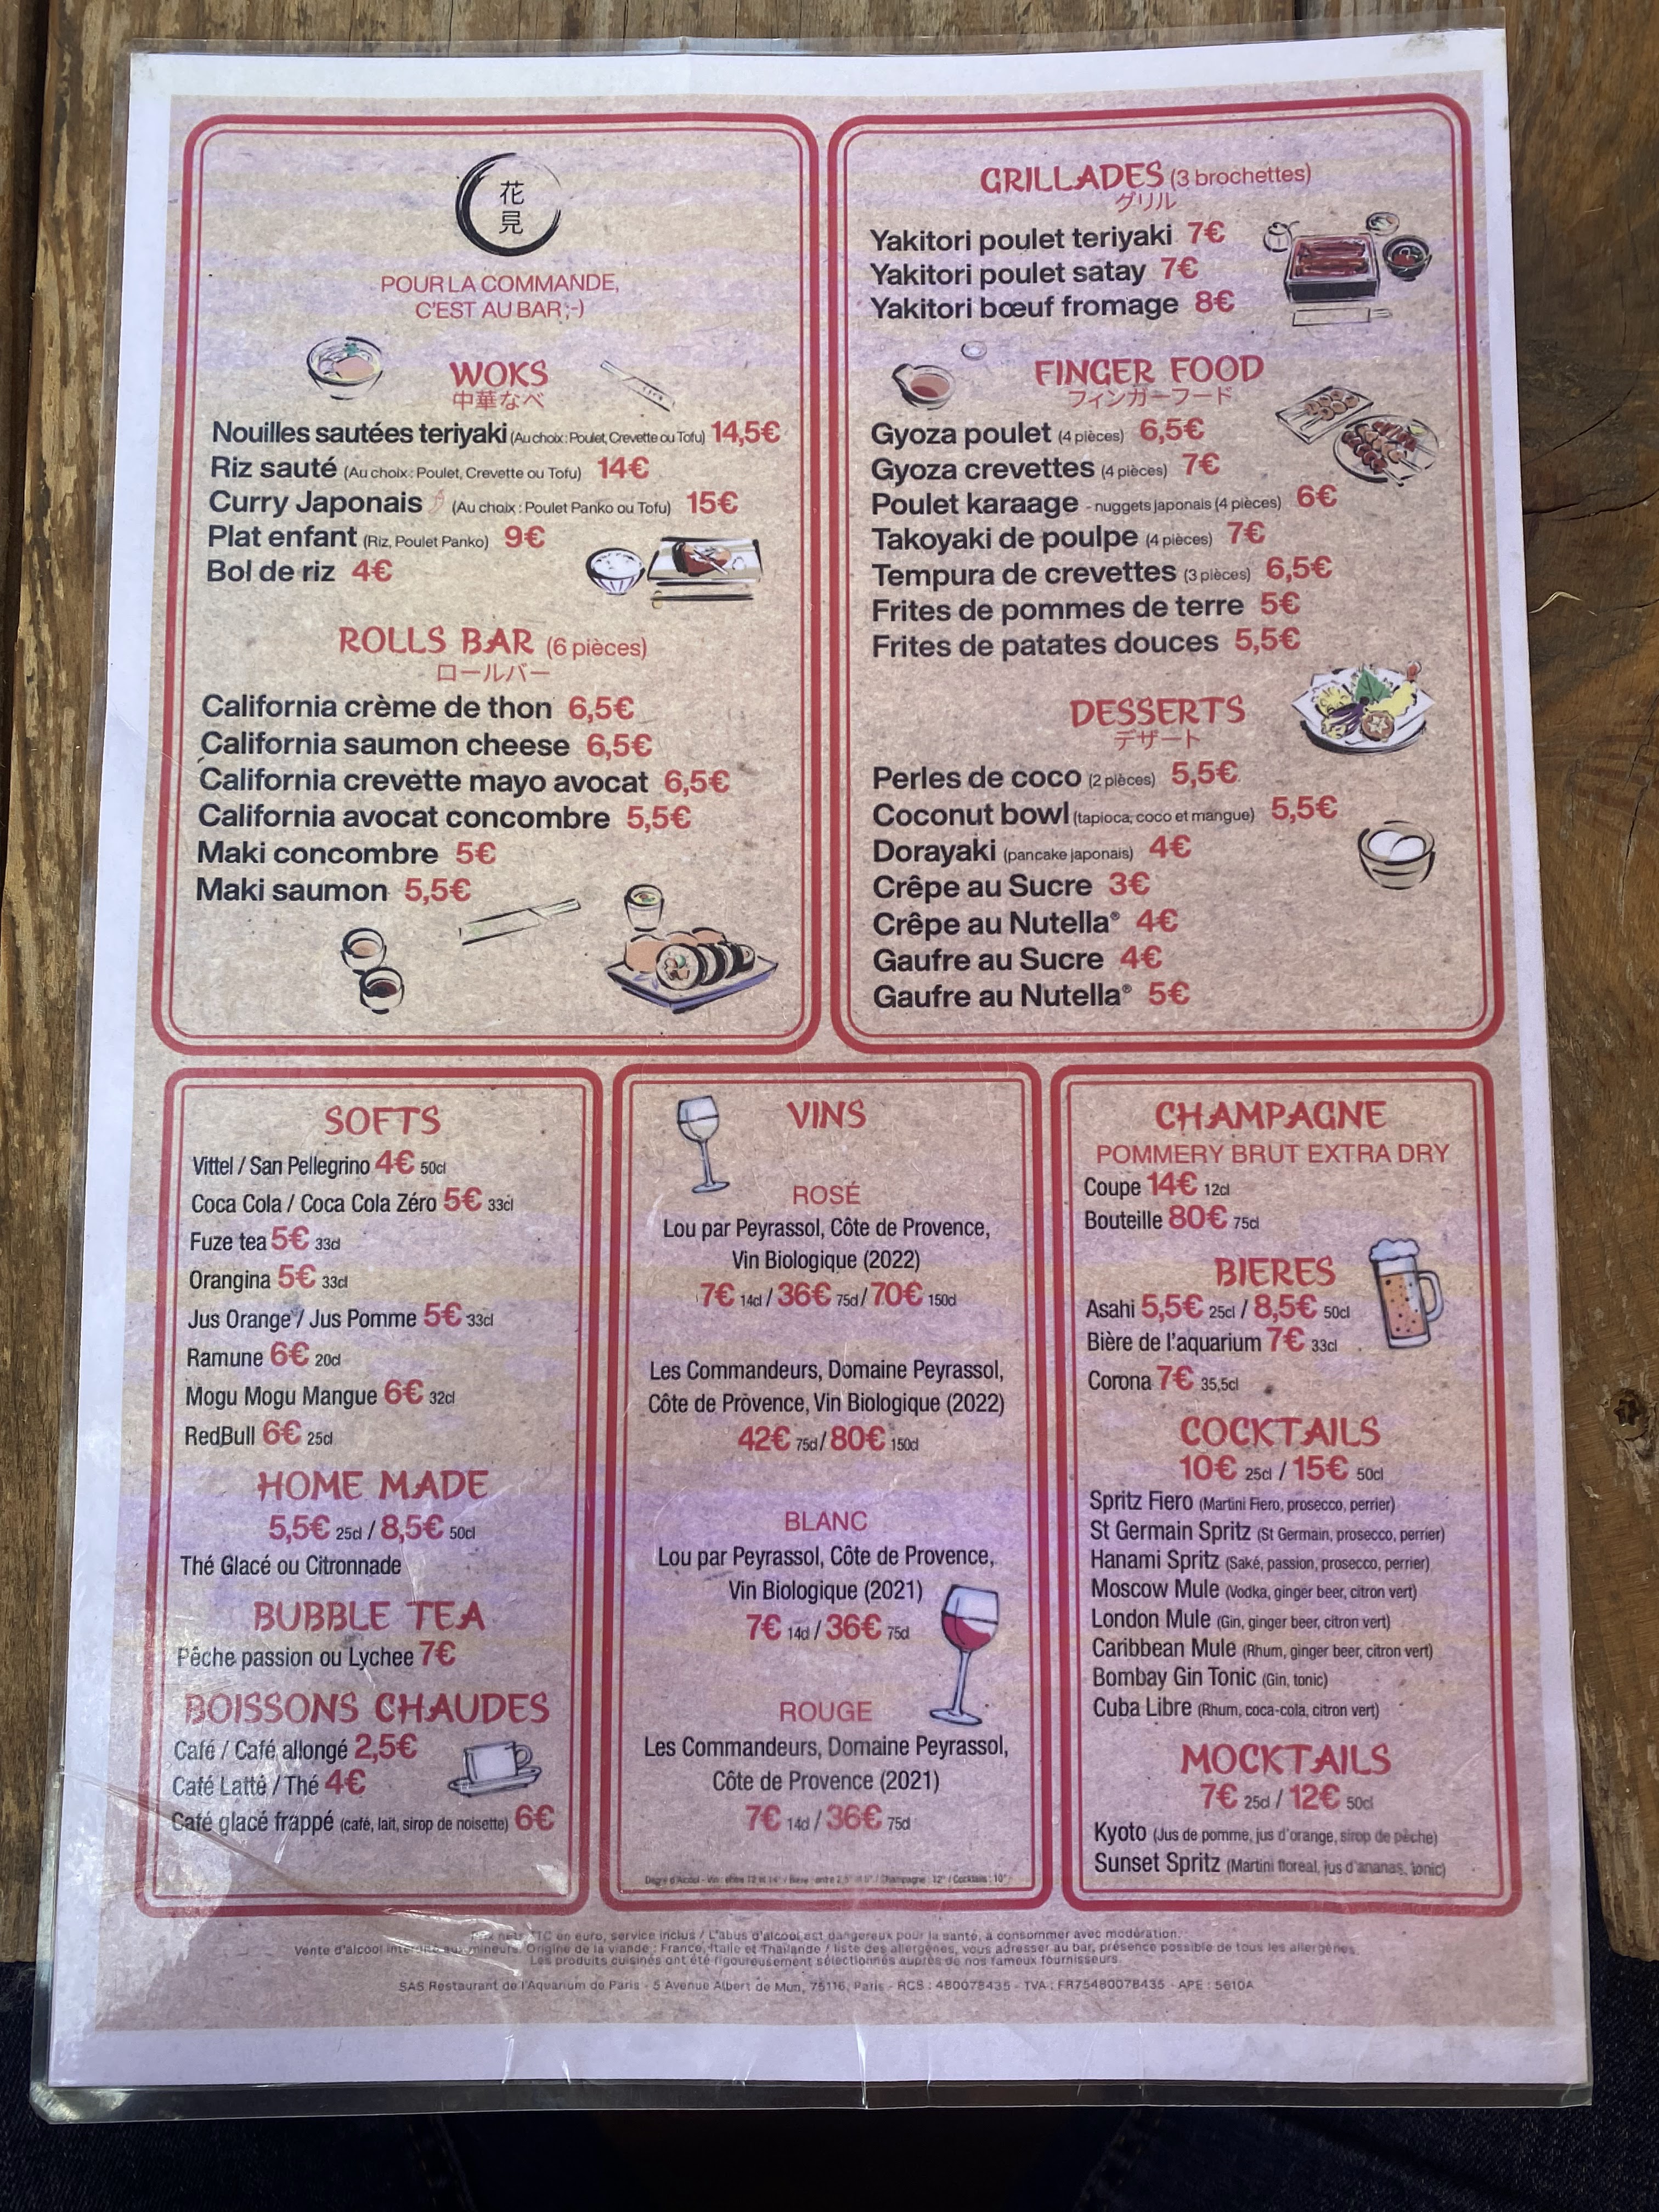 花
見
POUR LA COMMANDE,
C'EST AU BAR ;-)
WOKS
中華なべ
Nouilles sautées teriyaki (Au choix : Poulet, Crevette ou Tofu) 14,5€
Riz sauté (Au choix : Poulet, Crevette ou Tofu) 14€
Curry Japonais (Au choix : Poulet Panko ou Tofu) 15€
Plat enfant (Riz, Poulet Panko) 9€
Bol de riz 4€
ROLLS BAR (6 pièces)
ロールバー
California crème de thon 6,5€
California saumon cheese 6,5€
California crevette mayo avocat 6,5€
California avocat concombre 5,5€
Maki concombre 5€
Maki saumon 5,5€
GRILLADES (3 brochettes)
グリル
Yakitori poulet teriyaki 7€
Yakitori poulet satay 7€
Yakitori bœuf fromage 8€
FINGER FOOD
フィンガーフード
Gyoza poulet (4 pièces) 6,5€
Gyoza crevettes (4 pièces) 7€
Poulet karaage - nuggets japonais (4 pièces) 6€
Takoyaki de poulpe (4 pièces) 7€
Tempura de crevettes (3 pièces) 6,5€
Frites de pommes de terre 5€
Frites de patates douces 5,5€
DESSERTS
デザート
Perles de coco (2 pièces) 5,5€
Coconut bowl (tapioca, coco et mangue) 5,5€
Dorayaki (pancake japonais) 4€
Crêpe au Sucre 3€
Crêpe au Nutella® 4€
Gaufre au Sucre 4€
Gaufre au Nutella® 5€
SOFTS
Vittel / San Pellegrino 4€ 50cl
Coca Cola / Coca Cola Zéro 5€ 33cl
Fuze tea 5€ 33cl
Orangina 5€ 33cl
Jus Orange / Jus Pomme 5€ 33cl
Ramune 6€ 20cl
Mogu Mogu Mangue 6€ 32cl
RedBull 6€ 25cl
HOME MADE
5,5€ 25cl / 8,5€ 50cl
Thé Glacé ou Citronnade
BUBBLE TEA
Pêche passion ou Lychee 7€
BOISSONS CHAUDES
Café / Café allongé 2,5€
Café Latté / Thé 4€
Café glacé frappé (café, lait, sirop de noisette) 6€
VINS
ROSÉ
Lou par Peyrassol, Côte de Provence,
Vin Biologique (2022)
7€ 14cl / 36€ 75cl / 70€ 150cl
Les Commandeurs, Domaine Peyrassol,
Côte de Provence, Vin Biologique (2022)
42€ 75cl / 80€ 150cl
BLANC
Lou par Peyrassol, Côte de Provence,
Vin Biologique (2021)
7€ 14cl / 36€ 75cl
ROUGE
Les Commandeurs, Domaine Peyrassol,
Côte de Provence (2021)
7€ 14cl / 36€ 75cl
Degré d'Alcool - Vin : entre 12 et 14° / Bière : entre / Champagne : 12° / Cocktails : 10°
CHAMPAGNE
POMMERY BRUT EXTRA DRY
Coupe 14€ 12cl
Bouteille 80€ 75cl
BIERES
Asahi 5,5€ 25cl / 8,5€ 50cl
Bière de l'aquarium 7€ 33cl
Corona 7€ 35,5cl
COCKTAILS
10€ 25cl / 15€ 50cl
Spritz Fiero (Martini Fiero, prosecco, perrier)
St Germain Spritz (St Germain, prosecco, perrier)
Hanami Spritz (Saké, passion, prosecco, perrier)
Moscow Mule (Vodka, ginger beer, citron vert)
London Mule (Gin, ginger beer, citron vert)
Caribbean Mule (Rhum, ginger beer, citron vert)
Bombay Gin Tonic (Gin, tonic)
Cuba Libre (Rhum, coca-cola, citron vert)
MOCKTAILS
7€ 25cl / 12€ 50cl
Kyoto (Jus de pomme, jus d'orange, sirop de pêche)
Sunset Spritz (Martini floreal, jus d'ananas, tonic)
nets TTC en euro, service inclus / L'abus d'alcool est dangereux pour la santé, à consommer avec modération.
Vente d'alcool interdite aux mineurs. Origine de la viande : France, Italie et Thaïlande / liste des allergènes, vous adresser au bar, présence possible de tous les allergènes.
Les produits cuisinés ont été rigoureusement sélectionnés auprès de nos fameux fournisseurs.
SAS Restaurant de l'Aquarium de Paris - 5 Avenue Albert de Mun, 75116, Paris - RCS : 480078435 - TVA : FR75480078435 - APE : 5610A